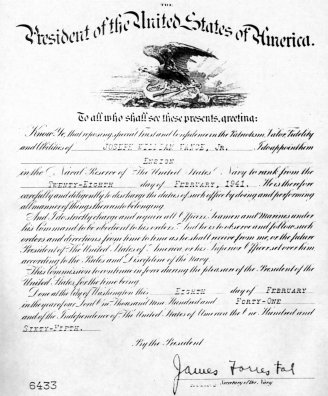 THE
President of the United States of America.
To all who shall see these presents, greeting:
Know Ye, that reposing special trust and confidence in the Patriotism, Valor, Fidelity
and Abilities of JOSEPH WILLIAM Jr. I do appoint him
ENSIGN
in the Naval Reserve of The United States Navy to rank from the
TWENTY-EIGHTH day of FEBRUARY, 1941. He is therefore
carefully and diligently to discharge the duties of such office by doing and performing
all manner of things thereunto belonging.
And I do strictly charge and require all Officers, Seamen and Marines under
his Command to be obedient to his orders. And he is to observe and follow such
orders and directions from time to time as he shall receive from me, or the future
President of The United States of America or his Superior Officer set over him
according to the Rules and Discipline of the Navy.
This Commission to continue in force during the pleasure of the President of the
United States for the time being.
Done at the City of Washington this EIGHTH day of FEBRUARY
in the year of our Lord One Thousand Nine Hundred and FORTY-ONE
and of the Independence of The United States of America the One Hundred and
SIXTY-FIFTH.
By the President
James Forrestal
Secretary of the Navy.
6433